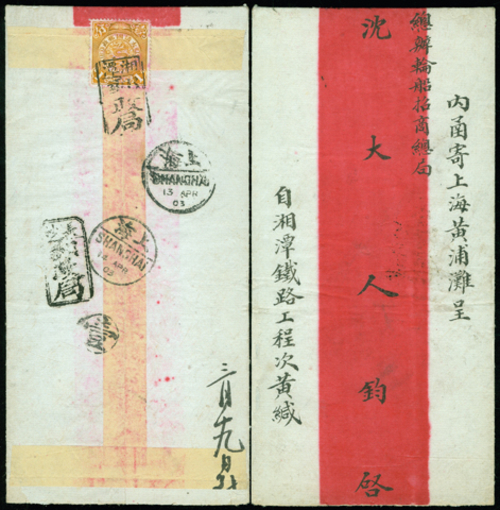 上海
SHANGHAI
13 APR
03
上海
SHANGHAI
APR
三月十九
內函寄上海黃浦灘呈
總辦輪船招商總局
沈大人鈞啓
自湘潭鐵路工程次黃緘